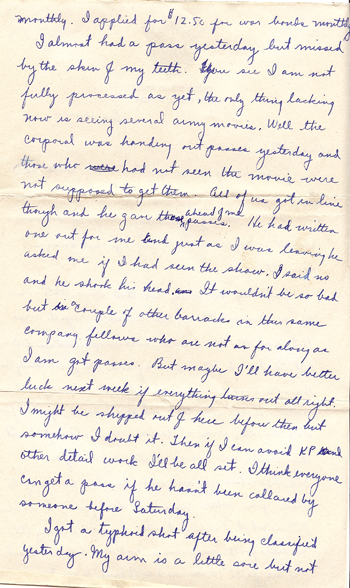 monthly. I applied for $12.50 for war bonds monthly
I almost had a pass yesterday but missed
by the skin of my teeth. You see I am not
fully processed as yet, the only thing lacking
now is seeing several army movies. Well the
corporal was handing out passes yesterday and
those who were had not seen the movie were
not supposed to get them. All of us got in line
though and he gave those ahead of me passes. He had written
one out for me and just as I was leaving he
asked me if I had seen the show. I said no
and he shook his head. It wouldn't be so bad
but a couple of other barracks in this same
company fellows who are not as far along as
I am got passes. But maybe I'll have better
luck next week if everything turns out all right.
I might be shipped out of here before then but
somehow I doubt it. Then if I can avoid KP and
other detail work I'll be all set. I think everyone
can get a pass if he hasn't been collared by
someone before Saturday.
I got a typhoid shot after being classified
yesterday. My arm is a little sore but not